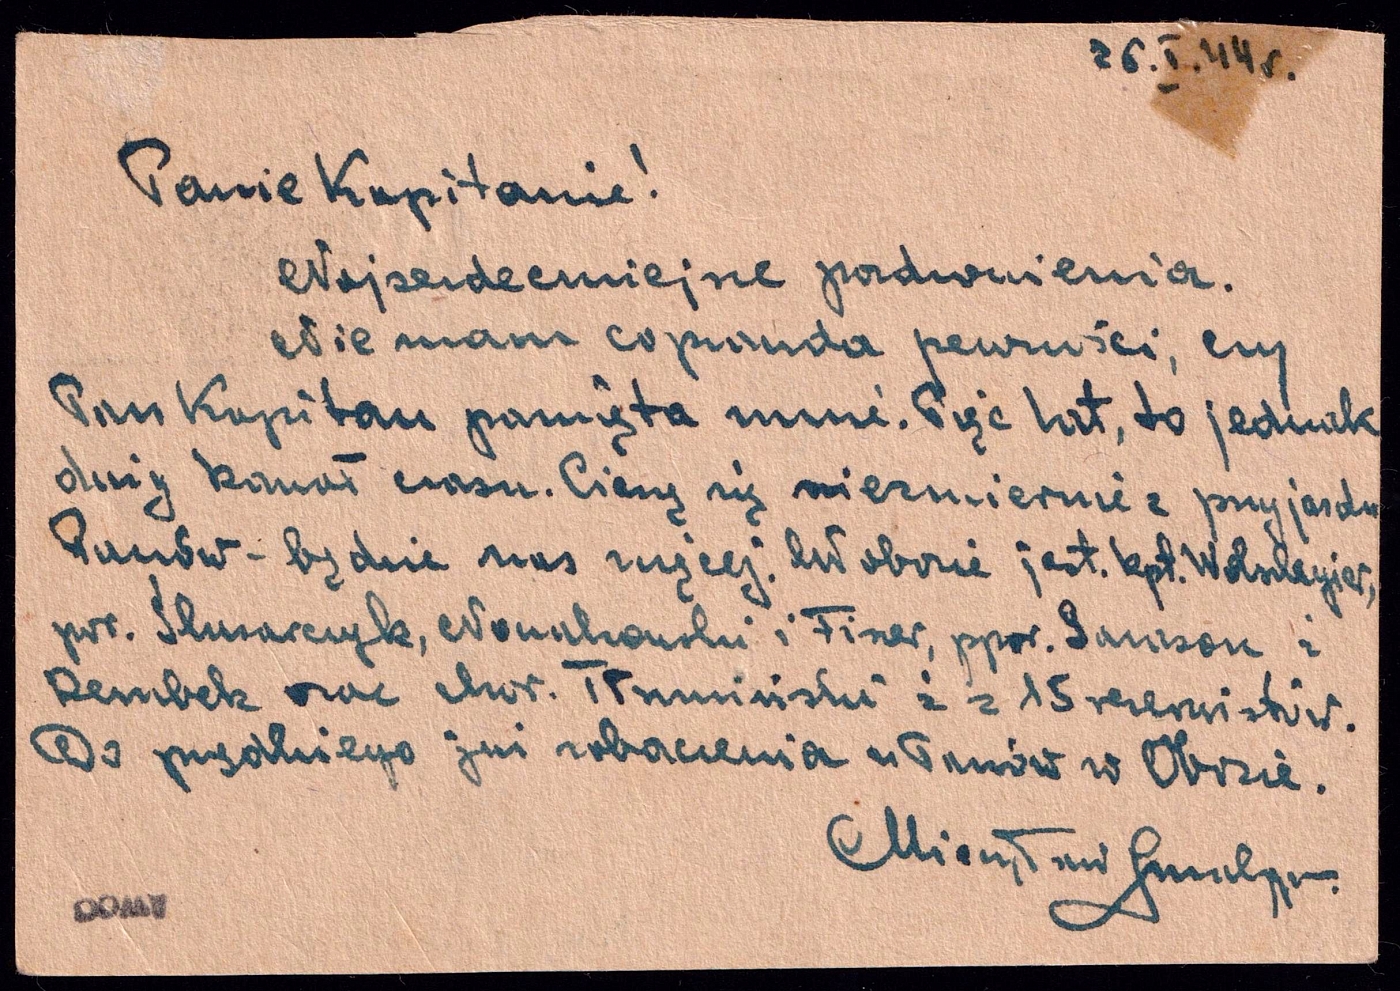 26.I.44r.
Panie Kapitanie!
Najserdeczniejsze pozdrowienia.
Nie mam coprawda pewności, czy
Pan Kapitan pamięta mnie. Pięć lat, to jednak
duży kawał czasu. Cieszę się niezmiernie z przyjazdu
Panów - będzie nas więcej. W obozie jest. kpt. Wolszlegier,
por. Ślusarczyk, Nowakowski i Fiser, ppor. Samson i
Zembek oraz chor. Tłumiński i z 15 rezerwistów.
Do prędkiego już zobaczenia u Panów w Obozie.
Mieczysław